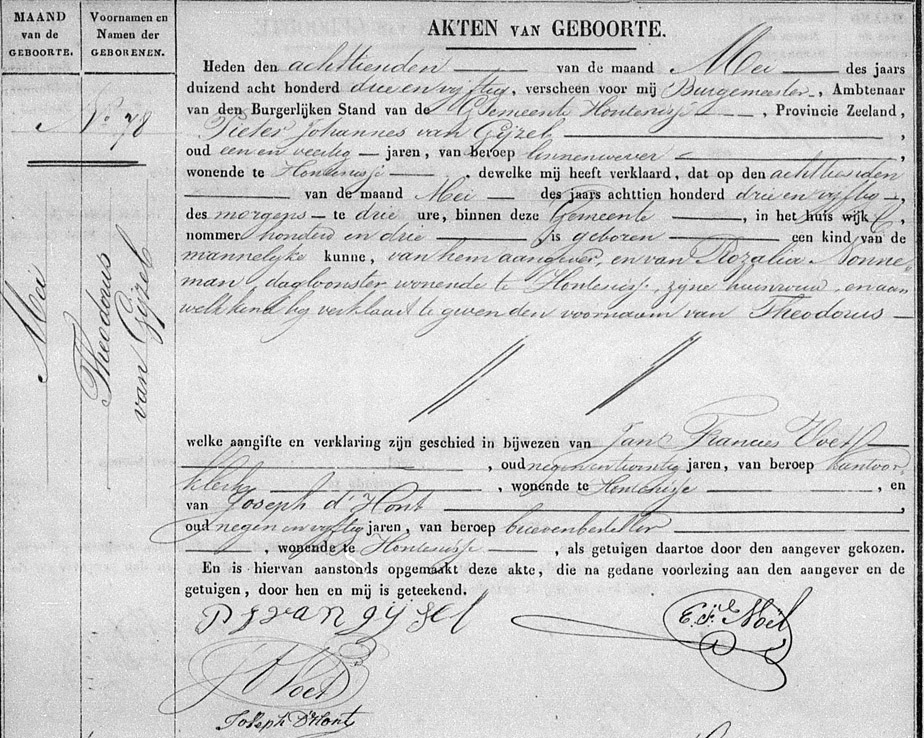 MAAND
van de
GEBOORTE.
Voornamen en
Namen der
GEBORENEN.
No 78
Mei
Theodorus
van Gijzel
AKTEN VAN GEBOORTE.
Heden den achttienden van de maand Mei des jaars
duizend acht honderd drie en vijftig, verscheen voor mij Burgemeester, Ambtenaar
van den Burgerlijken Stand van de Gemeente Hontenisse, Provincie Zeeland,
Pieter Johannes van Gijzel,
oud een en veertig jaren, van beroep linnenwever,
wonende te Hontenisse, dewelke mij heeft verklaard, dat op den achttienden
van de maand Mei des jaars achttien honderd drie en vijftig,
des morgens te drie ure, binnen deze Gemeente, in het huis wijk C,
nommer honderd en drie, is geboren een kind van de
mannelijke kunne, van hem aangever, en van Rozalia Nonne-
man dagloonster wonende te Hontenisse, zijne huisvrouw, en aan
welk kind hij verklaart te geven den voornaam van Theodorus
welke aangifte en verklaring zijn geschied in bijwezen van Jan Francies Voet
, oud negen en twintig jaren, van beroep kantoor-
klerk, wonende te Hontenisse, en
van Joseph d'Hont,
oud negen en vijftig jaren, van beroep brievenbesteller
, wonende te Hontenisse, als getuigen daartoe door den aangever gekozen.
En is hiervan aanstonds opgemaakt deze akte, die na gedane voorlezing aan den aangever en de
getuigen, door hen en mij is geteekend.
P J van gijsel
E. F. Noël
J F Voet
Joseph D'Hont